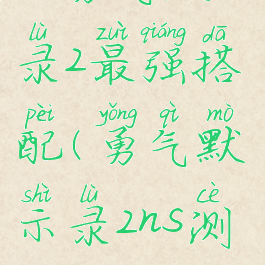 lù zuì qiáng dā
录2最强搭
pèi yǒng qì mò
配(勇气默
shì lù cè
示录2ns测